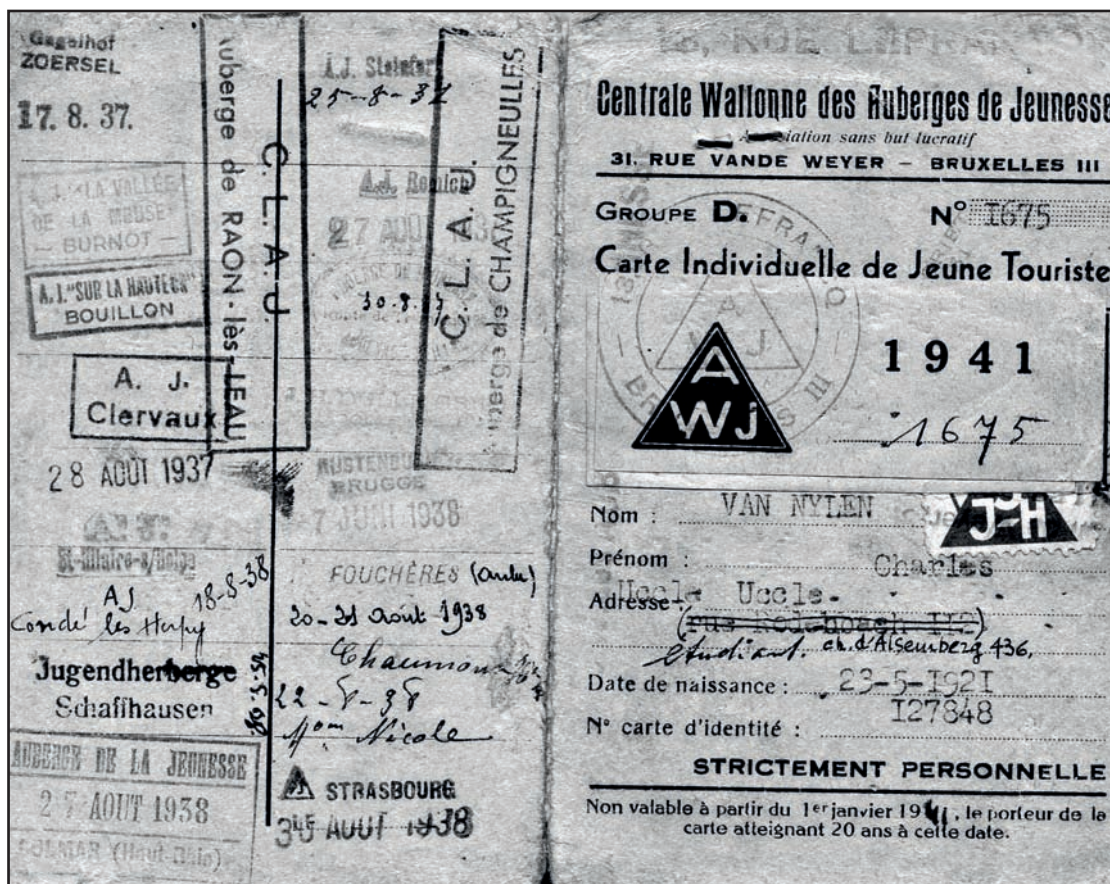 Gagelhof
ZOERSEL
17. 8. 37.
A. J. "LA VALLÉE
DE LA MEUSE"
— BURNOT —
A. J. "SUR LA HAUTEUR"
BOUILLON
A. J.
Clervaux
28 AOUT 1937
A. J.
St-Hilaire-s/Helpe
AJ 18-8-38
Condé les Herpy
Jugendherberge
Schaffhausen
AUBERGE DE LA JEUNESSE
27 AOUT 1938
COLMAR (Haut-Rhin)
Auberge de RAON-lès-LEAU
C. L. A. J.
A.J. Steinfort
25-8-37
A.J. Remich
27 AOU
30.8.
C. L. A. J.
Auberge de CHAMPIGNEULLES
RUSTENBURG
BRUGGE
7 JUNI 1938
FOUCHÈRES (Aube)
20-21 Août 1938
Chaumont
22-8-38
Nicole
STRASBOURG
AOUT 1938
RUE
Centrale Wallonne des Auberges de Jeunesse
Association sans but lucratif
31, RUE VANDE WEYER — BRUXELLES III
GROUPE D. N° I675
Carte Individuelle de Jeune Touriste
A
WJ
1941
1675
Nom : VAN NYLEN
J-H
Prénom : Charles
Adresse : Uccle Uccle.
étudiant. ch. d'Alsemberg 436.
Date de naissance : 23-5-I92I
N° carte d'identité : I27848
STRICTEMENT PERSONNELLE
Non valable à partir du 1er janvier 1941, le porteur de la
carte atteignant 20 ans à cette date.